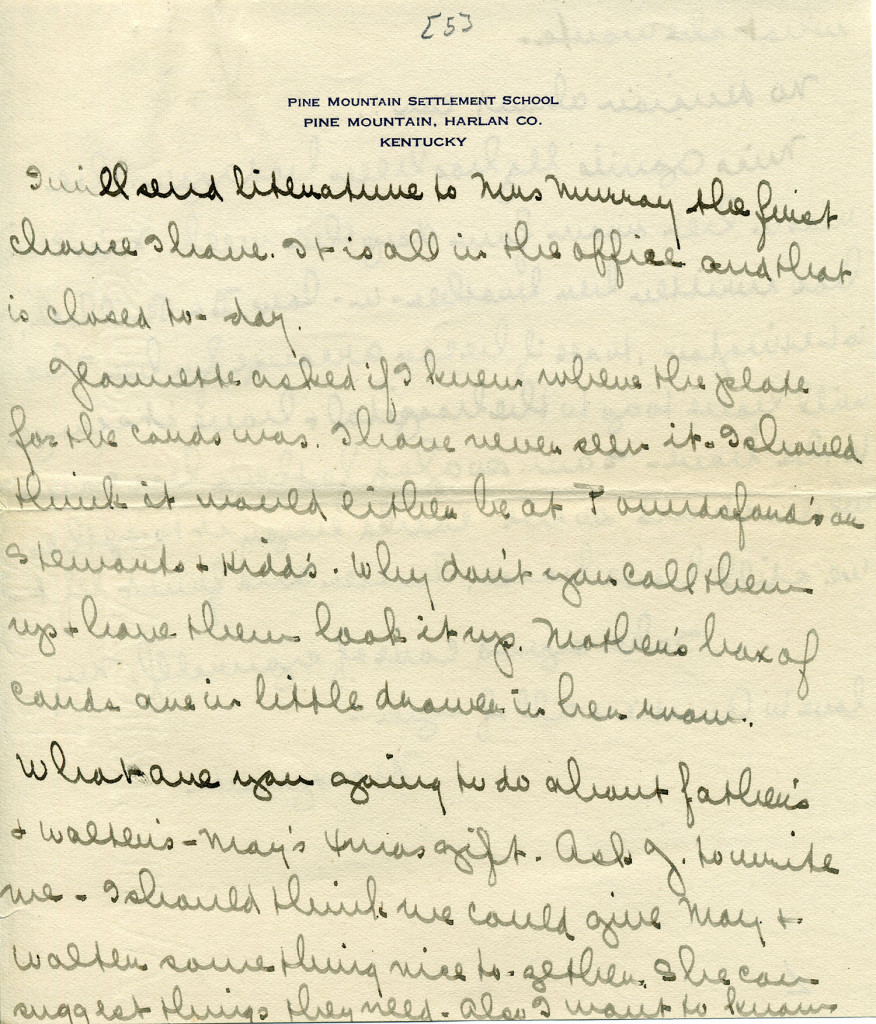 [5]
PINE MOUNTAIN SETTLEMENT SCHOOL
PINE MOUNTAIN, HARLAN CO.
KENTUCKY
I will send literature to Mrs Murray the first
chance I have. It is all in the office and that
is closed to-day.
Jeannette asked if I knew where the plate
for the cards was. I have never seen it. I should
think it would either be at Poundsford's or
Stewarts + Kidd's. Why don't you call them
up + have them look it up. Mother's box of
cards are in little drawer in her room.
What are you going to do about father's
+ Walter's - May's Xmas gift. Ask J. to write
me - I should think we could give May +
Walter something nice to-gether. She can
suggest things they need. Also I want to know